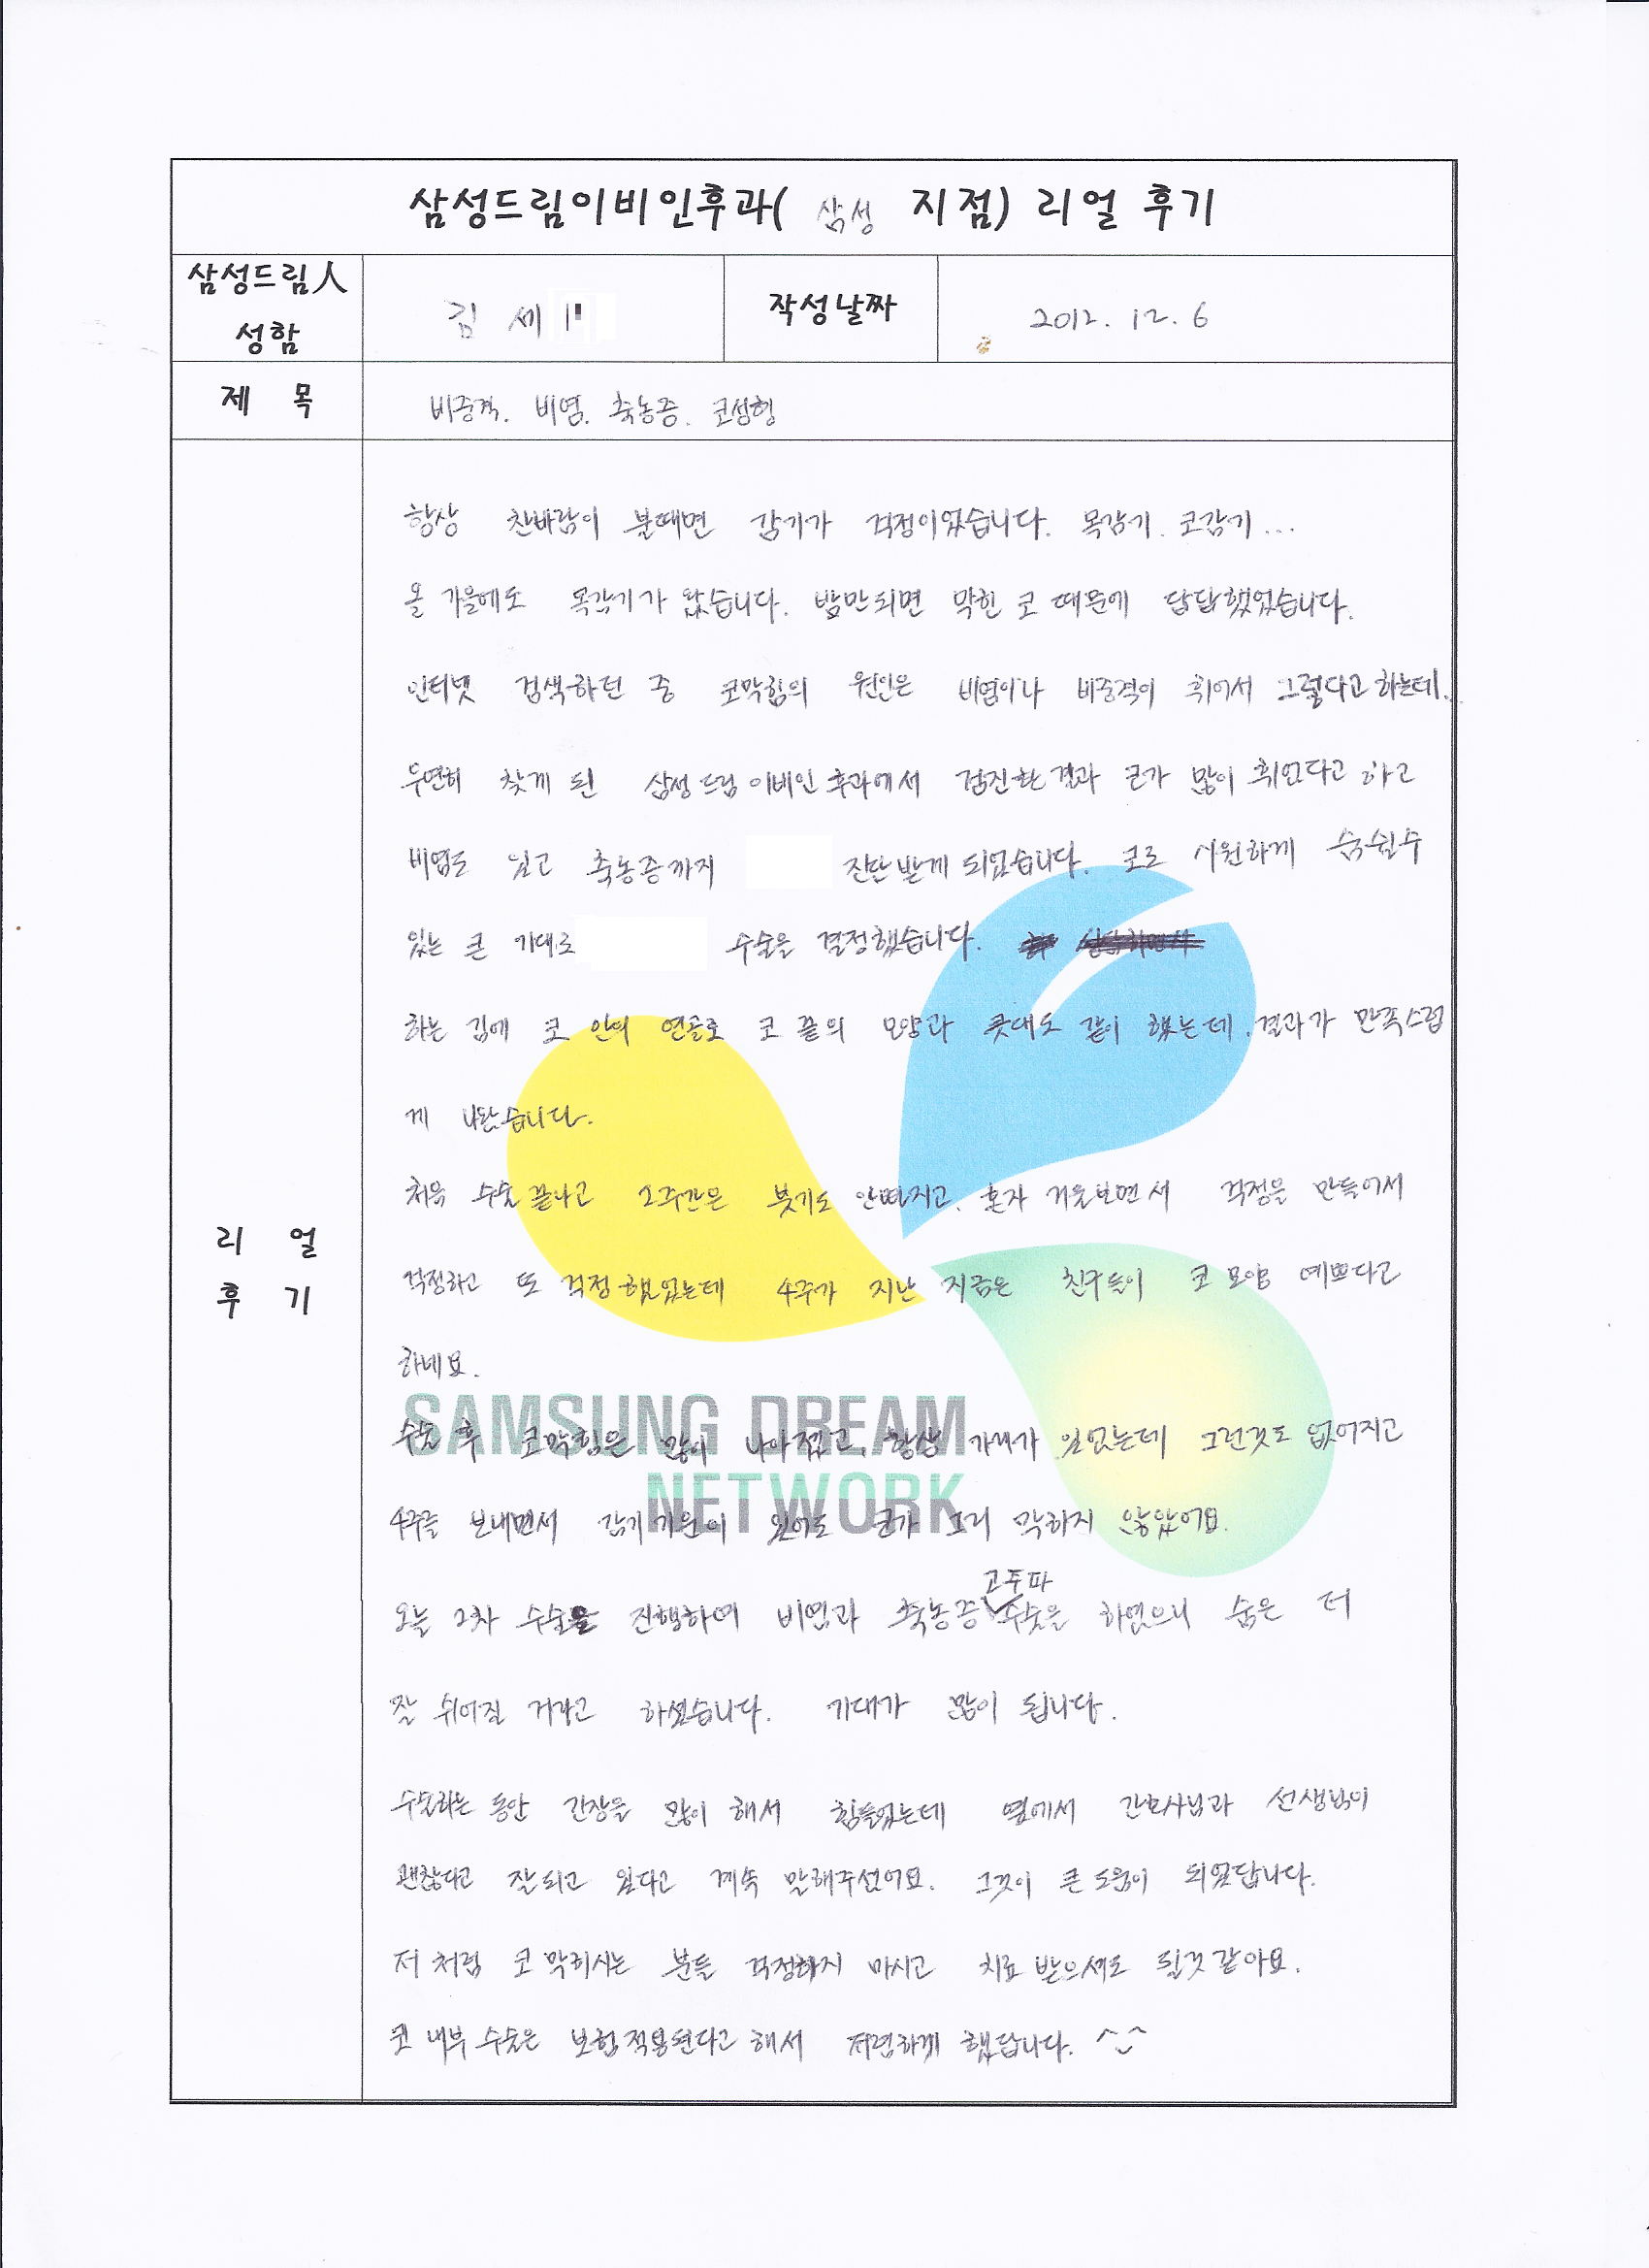 삼성드림이비인후과( 삼성 지점) 리얼 후기
삼성드림人
성함
김 세
작성날짜
2012. 12. 6
제 목
비중격. 비염. 축농증. 코성형
항상 찬바람이 불때면 감기가 걱정이었습니다. 목감기. 코감기...
올 가을에도 목감기가 왔습니다. 밤만되면 막힌 코 때문에 답답했었습니다.
인터넷 검색하던 중 코막힘의 원인은 비염이나 비중격이 휘어서 그렇다고 하는데.
우연히 찾게 된 삼성드림이비인후과에서 검진한 결과 코가 많이 휘었다고 하고
비염도 있고 축농증까지 진단받게 되었습니다. 코로 시원하게 숨쉴수
있는 큰 기대로 수술을 결정했습니다.
하는 김에 코 안의 연골로 코 끝의 모양과 콧대도 같이 했는데. 결과가 만족스럽
게 나왔습니다.
처음 수술 끝나고 2주간은 붓기도 안빠지고. 혼자 거울보면서 걱정을 만들어서
걱정하고 또 걱정했었는데 4주가 지난 지금은 친구들이 코 모양 예쁘다고
하네요.
SAMSUNG DREAM
NETWORK
수술 후 코막힘은 많이 나아졌고, 항상 가래가 있었는데 그런것도 없어지고
4주를 보내면서 감기기운이 있어도 코가 그리 막히지 않았어요.
오늘 2차 수술을 진행하여 비염과 축농증 고주파 수술을 하였으니 숨은 더
잘 쉬어질 거라고 하셨습니다. 기대가 많이 됩니다.
리 얼
후 기
수술하는 동안 긴장을 많이 해서 힘들었는데 옆에서 간호사님과 선생님이
괜찮다고 잘되고 있다고 계속 말해주셨어요. 그것이 큰 도움이 되었답니다.
저 처럼 코 막히시는 분들 걱정하지 마시고 치료 받으셔도 될것 같아요.
코 내부 수술은 보험적용된다고 해서 저렴하게 했답니다. ^_^